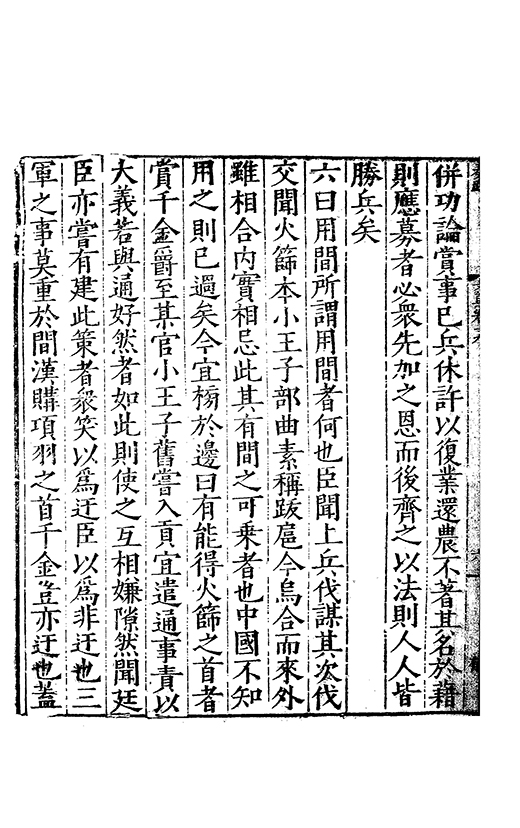 併功論賞事已兵休許以復業還農不著其名於藉
則應募者必衆先加之恩而後齊之以法則人人皆
勝兵矣
六曰用間所謂用間者何也臣聞上兵伐謀其次伐
交聞火篩本小王子部曲素稱跋扈今烏合而來外
雖相合内實相忌此其有間之可乗者也中國不知
用之則已過矣今宜榜於邊曰有能得火篩之首者
賞千金爵至某官小王子舊嘗入貢宜遣通事責以
大義若與通好然者如此則使之互相嫌隙然聞廷
臣亦嘗有建此策者衆笑以爲迂臣以爲非迂也三
軍之事莫重於間漢購項羽之首千金豈亦迂也蓋